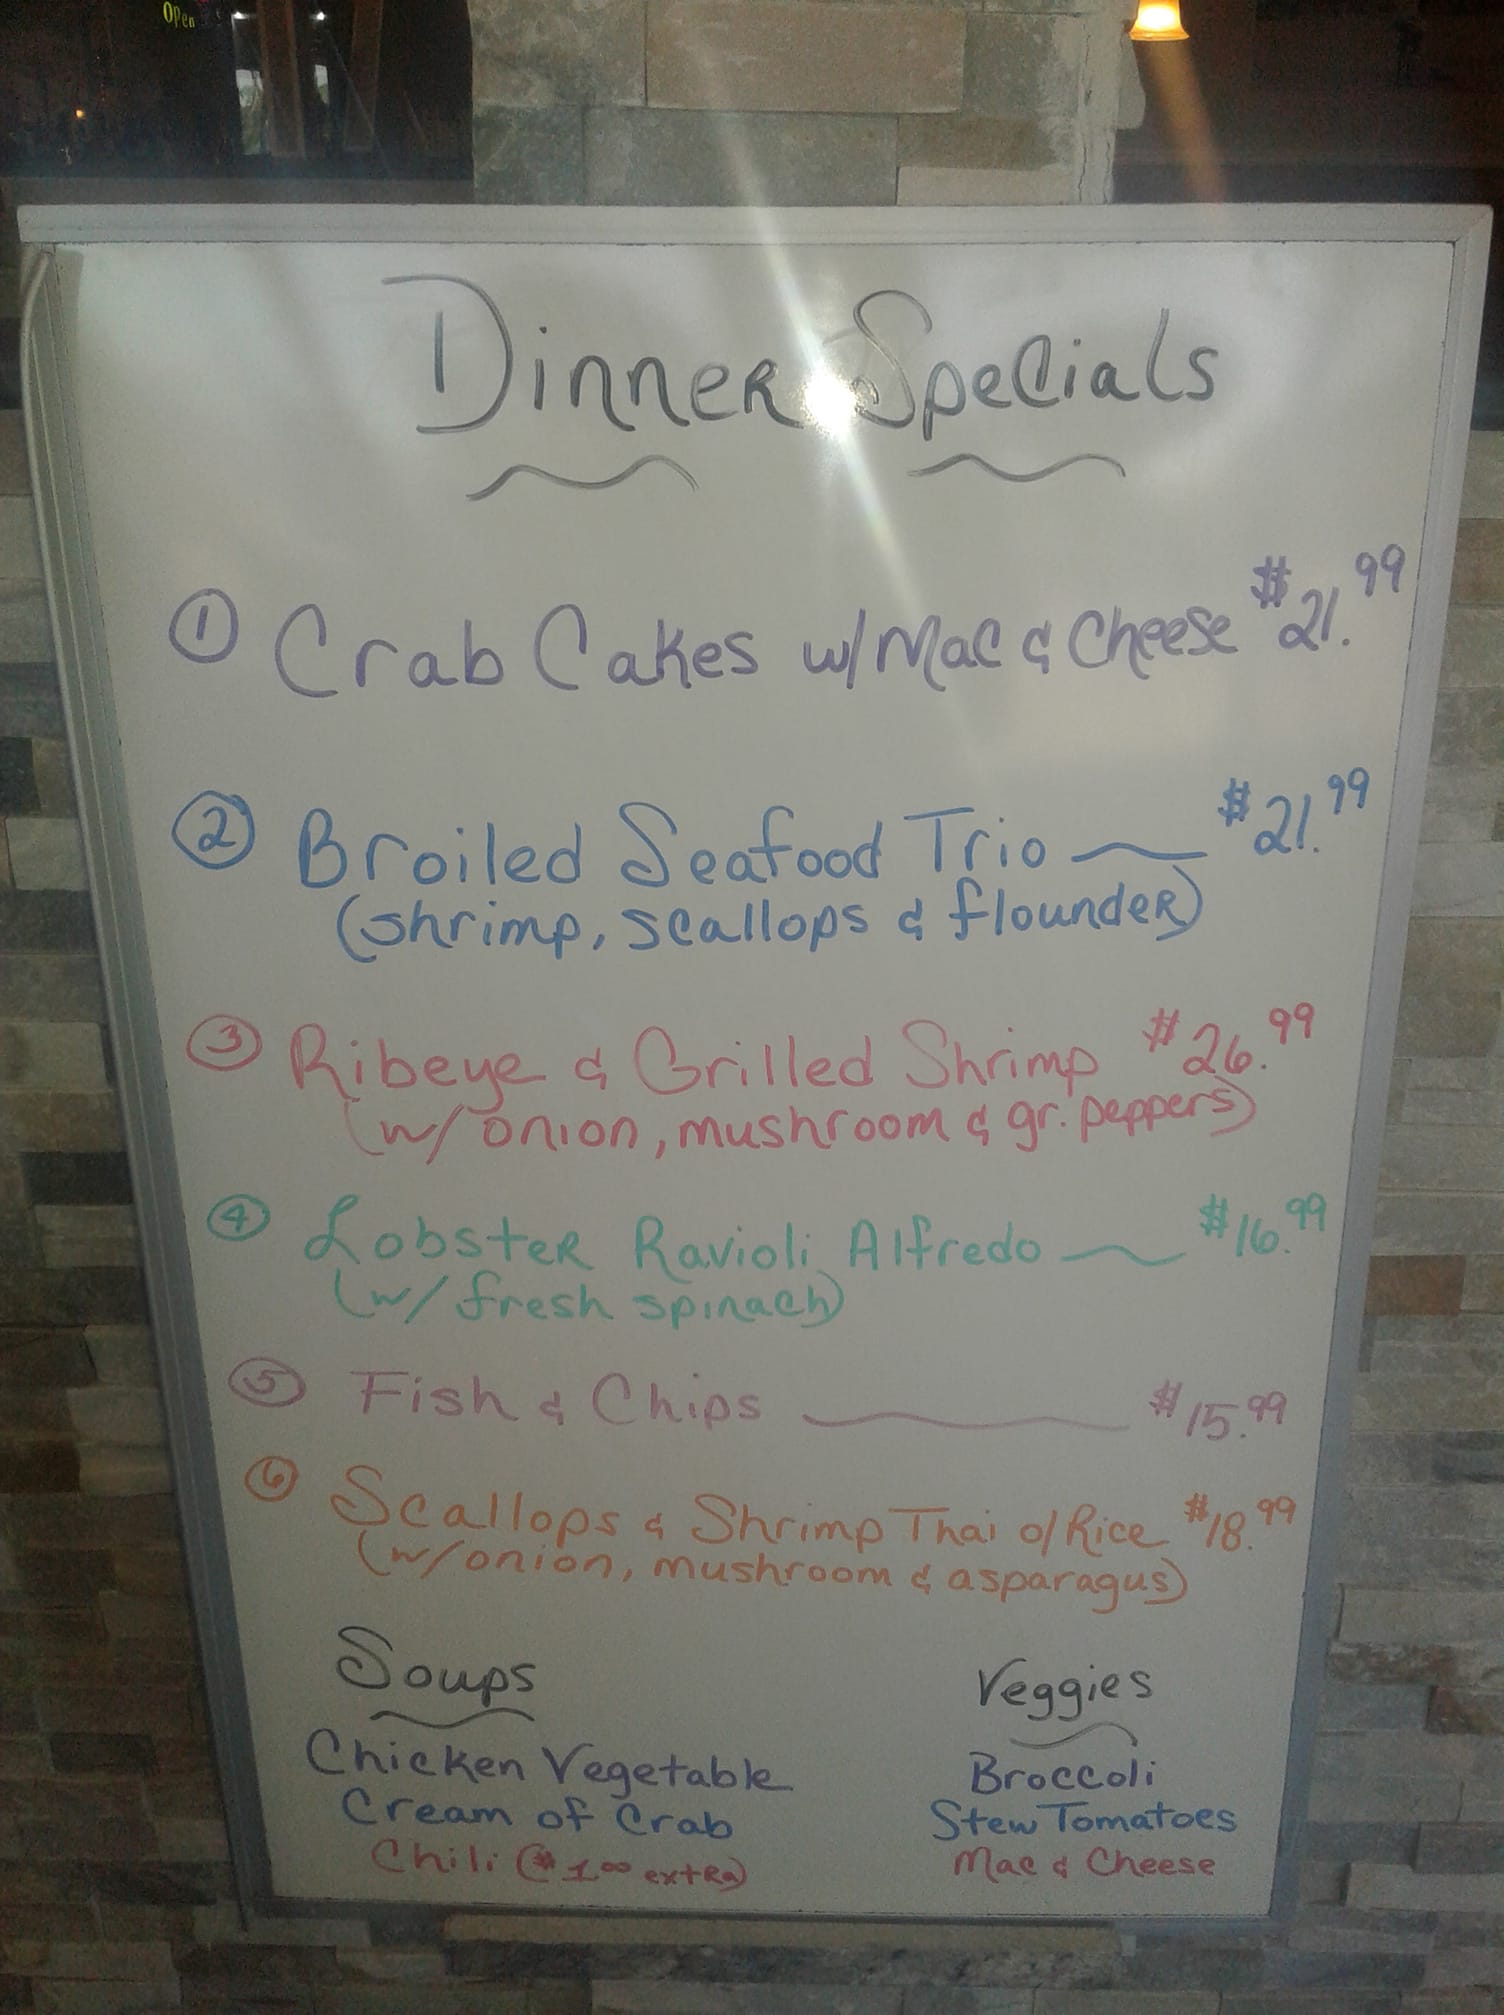 Open
Dinner Specials
① Crab Cakes w/ Mac & Cheese $21.99
② Broiled Seafood Trio $21.99
(shrimp, scallops & flounder)
③ Ribeye & Grilled Shrimp $26.99
(w/ onion, mushroom & gr. peppers)
④ Lobster Ravioli Alfredo $16.99
(w/ fresh spinach)
⑤ Fish & Chips $15.99
⑥ Scallops & Shrimp Thai o/ Rice $18.99
(w/ onion, mushroom & asparagus)
Soups
Chicken Vegetable
Cream of Crab
Chili ($1.00 extra)
Veggies
Broccoli
Stew Tomatoes
Mac & Cheese